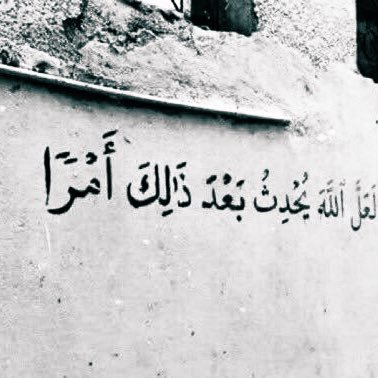 لَعَلَّ ٱللَّهَ يُحْدِثُ بَعْدَ ذَٰلِكَ أَمْرًا